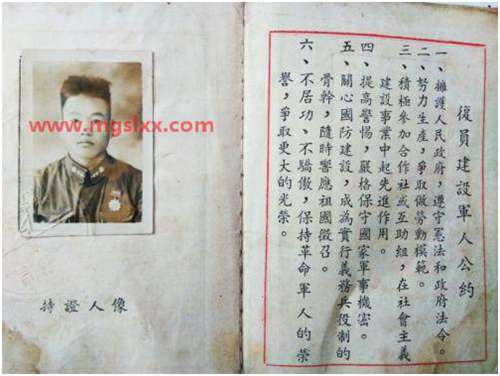 復員建設軍人公約
一、擁護人民政府，遵守憲法和政府法令。
二、努力生產，爭取做勞動模範。
三、積極參加合作社或互助組，在社會主義
建設事業中起先進作用。
四、提高警惕，嚴格保守國家軍事機密。
五、關心國防建設，成為實行義務兵役制的
骨幹，隨時響應祖國徵召。
六、不居功、不驕傲，保持革命軍人的榮
譽，爭取更大的光榮。
www.mgslxx.com
持證人像